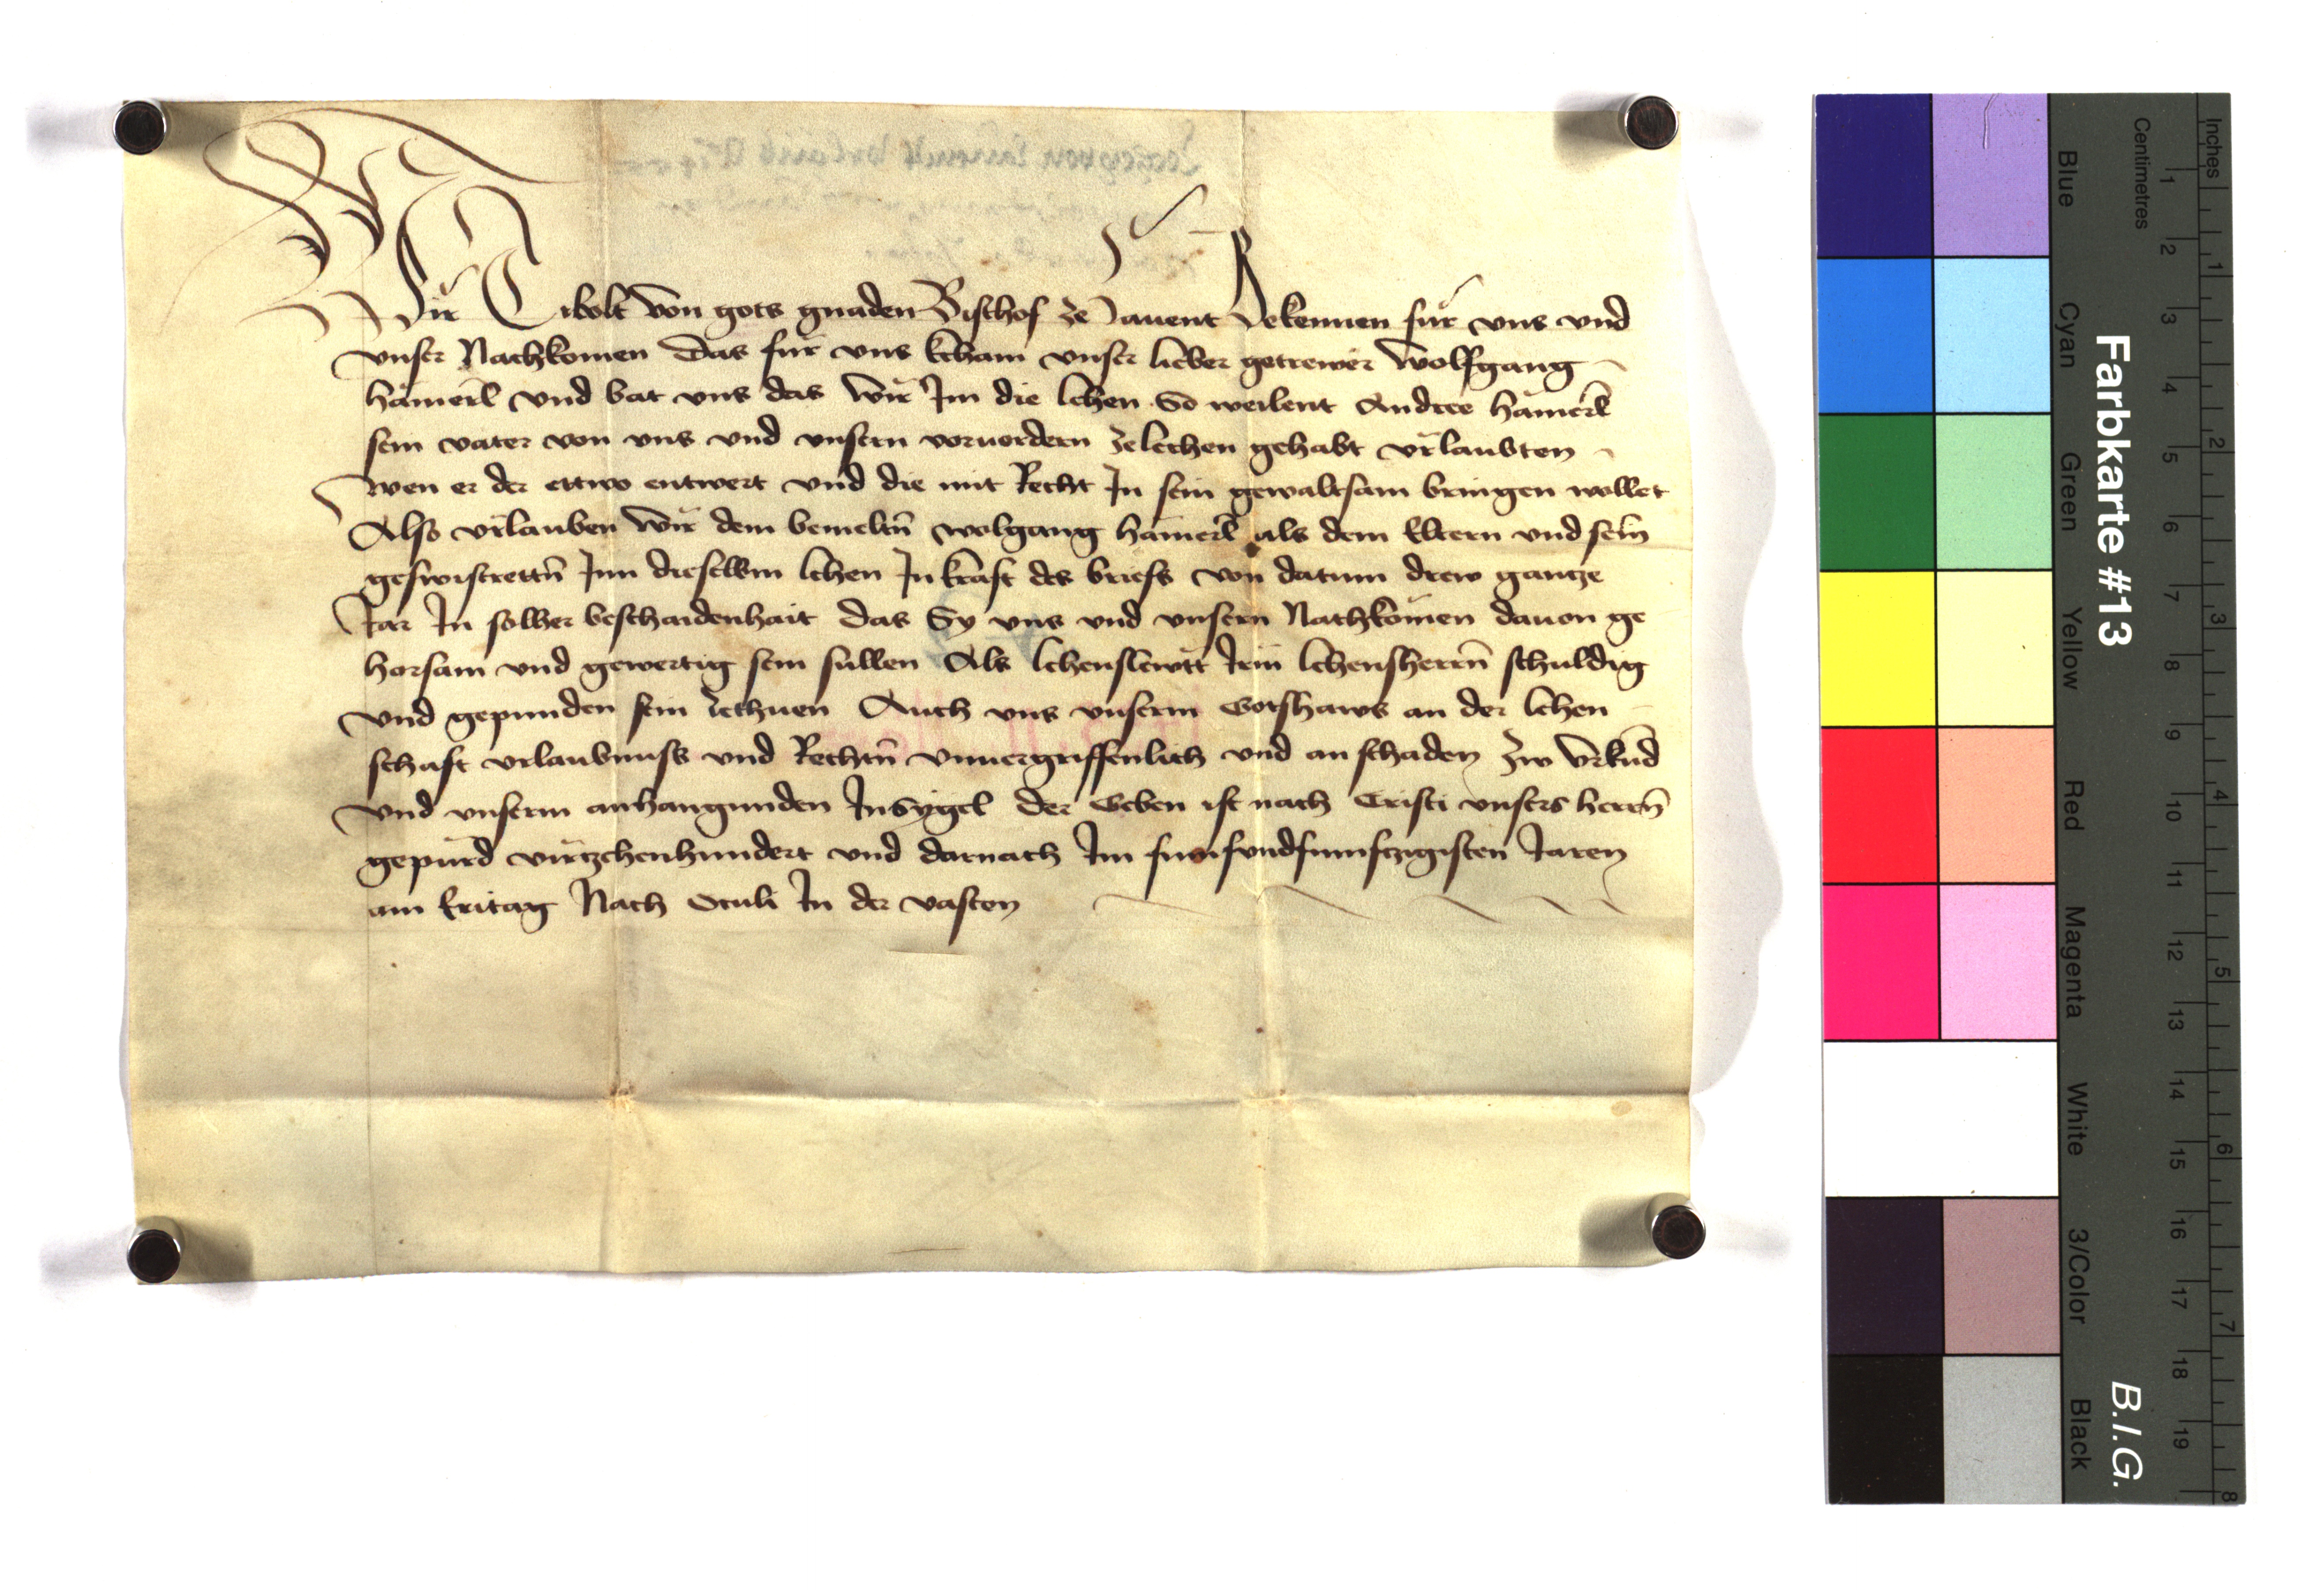 Wir Tibolt von gots gnaden Bischof ze Lauent Bekennen für vns vnd
vnser Nachkomen das für vns kcham vnser lieber getrewer Wolfgang
hämerl vnd bat vns das wir Im die lehen So weilent Andree hämerl
sein vater von vns vnd vnsern voruordern zelechen gehabt vrlaubten
wen er der ettwo entwert vnd die mit Recht In sein gewaltsam bringen wollet
Also vrlauben wir dem bemeltn̄ wolgang hämerl als dem Eltern vnd sein
geswistrettn̄ Inn dieselbm lehen In kraft des briefs von datum drew gantze
Jar In solher beschaidenhait das Sy vns vnd vnsern Nachkömen dauon ge
horsam vnd gewertig sein sullen Als lehenslewtt Irm lehensherrn̄ schuldig
vnd gepunden sein zethuen Auch vns vnserm Gotshaws an der lehen
schaft vrlaubnuss vnd Rechtn̄ vnuergriffenlich vnd an schaden Zw vrkund
vnd vnserm anhangunden Insygel der Geben ist nach Cristi vnsers herrn̄
gepurd virtzehenhundert vnd darnach Im funfvndfunftzigisten Jaren
am Eritag Nach Oculi In der vasten
Farbkarte #13
B.I.G.
Inches
1 2 3 4 5 6 7 8
Centimetres
1 2 3 4 5 6 7 8 9 10 11 12 13 14 15 16 17 18 19
Blue Cyan Green Yellow Red Magenta White 3/Color Black